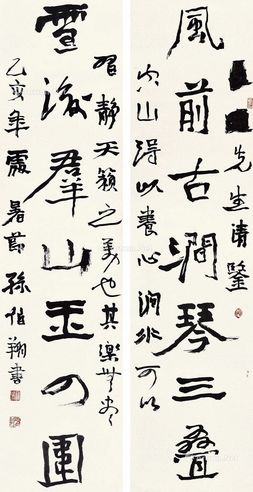 先生清鑒
風前古澗琴三疊
空山得以養心澗可以
習靜天籟之美也其樂無
雪後羣山玉四圍
乙亥年處暑節孫伯翔書